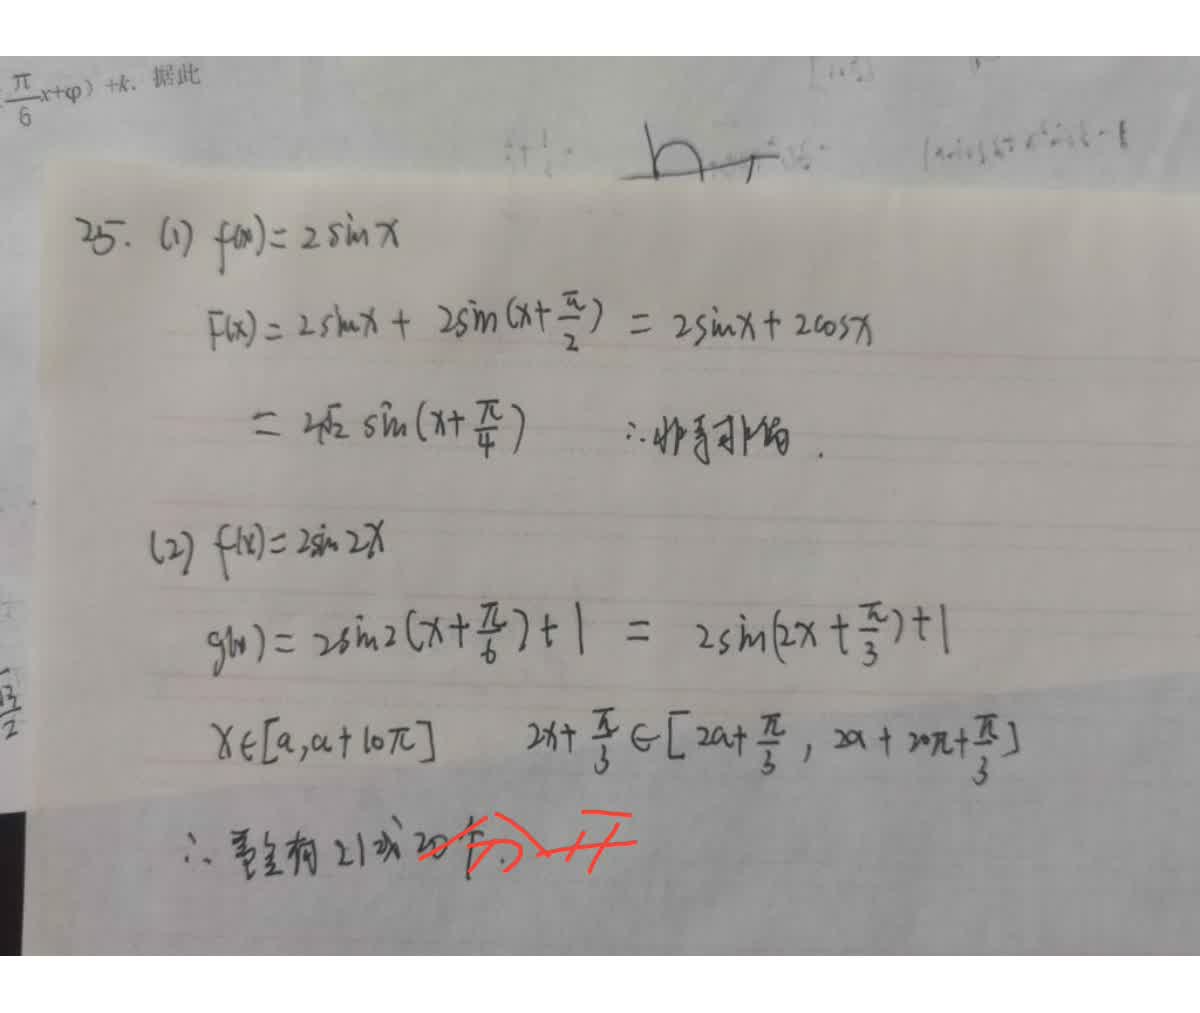 π/6 x+φ) +k. 据此
25. (1) f(x)=2sinx
F(x)=2sinx+ 2sin(x+π/2) = 2sinx+2cosx
= 2√2 sin(x+π/4) ∴非奇非偶.
(2) f(x)=2sin2x
g(x)=2sin2(x+π/6)+1 = 2sin(2x+π/3)+1
x∈[a,a+10π] 2x+π/3∈[2a+π/3, 2a+20π+π/3]
√3/2
∴ 有21或20个.
分开